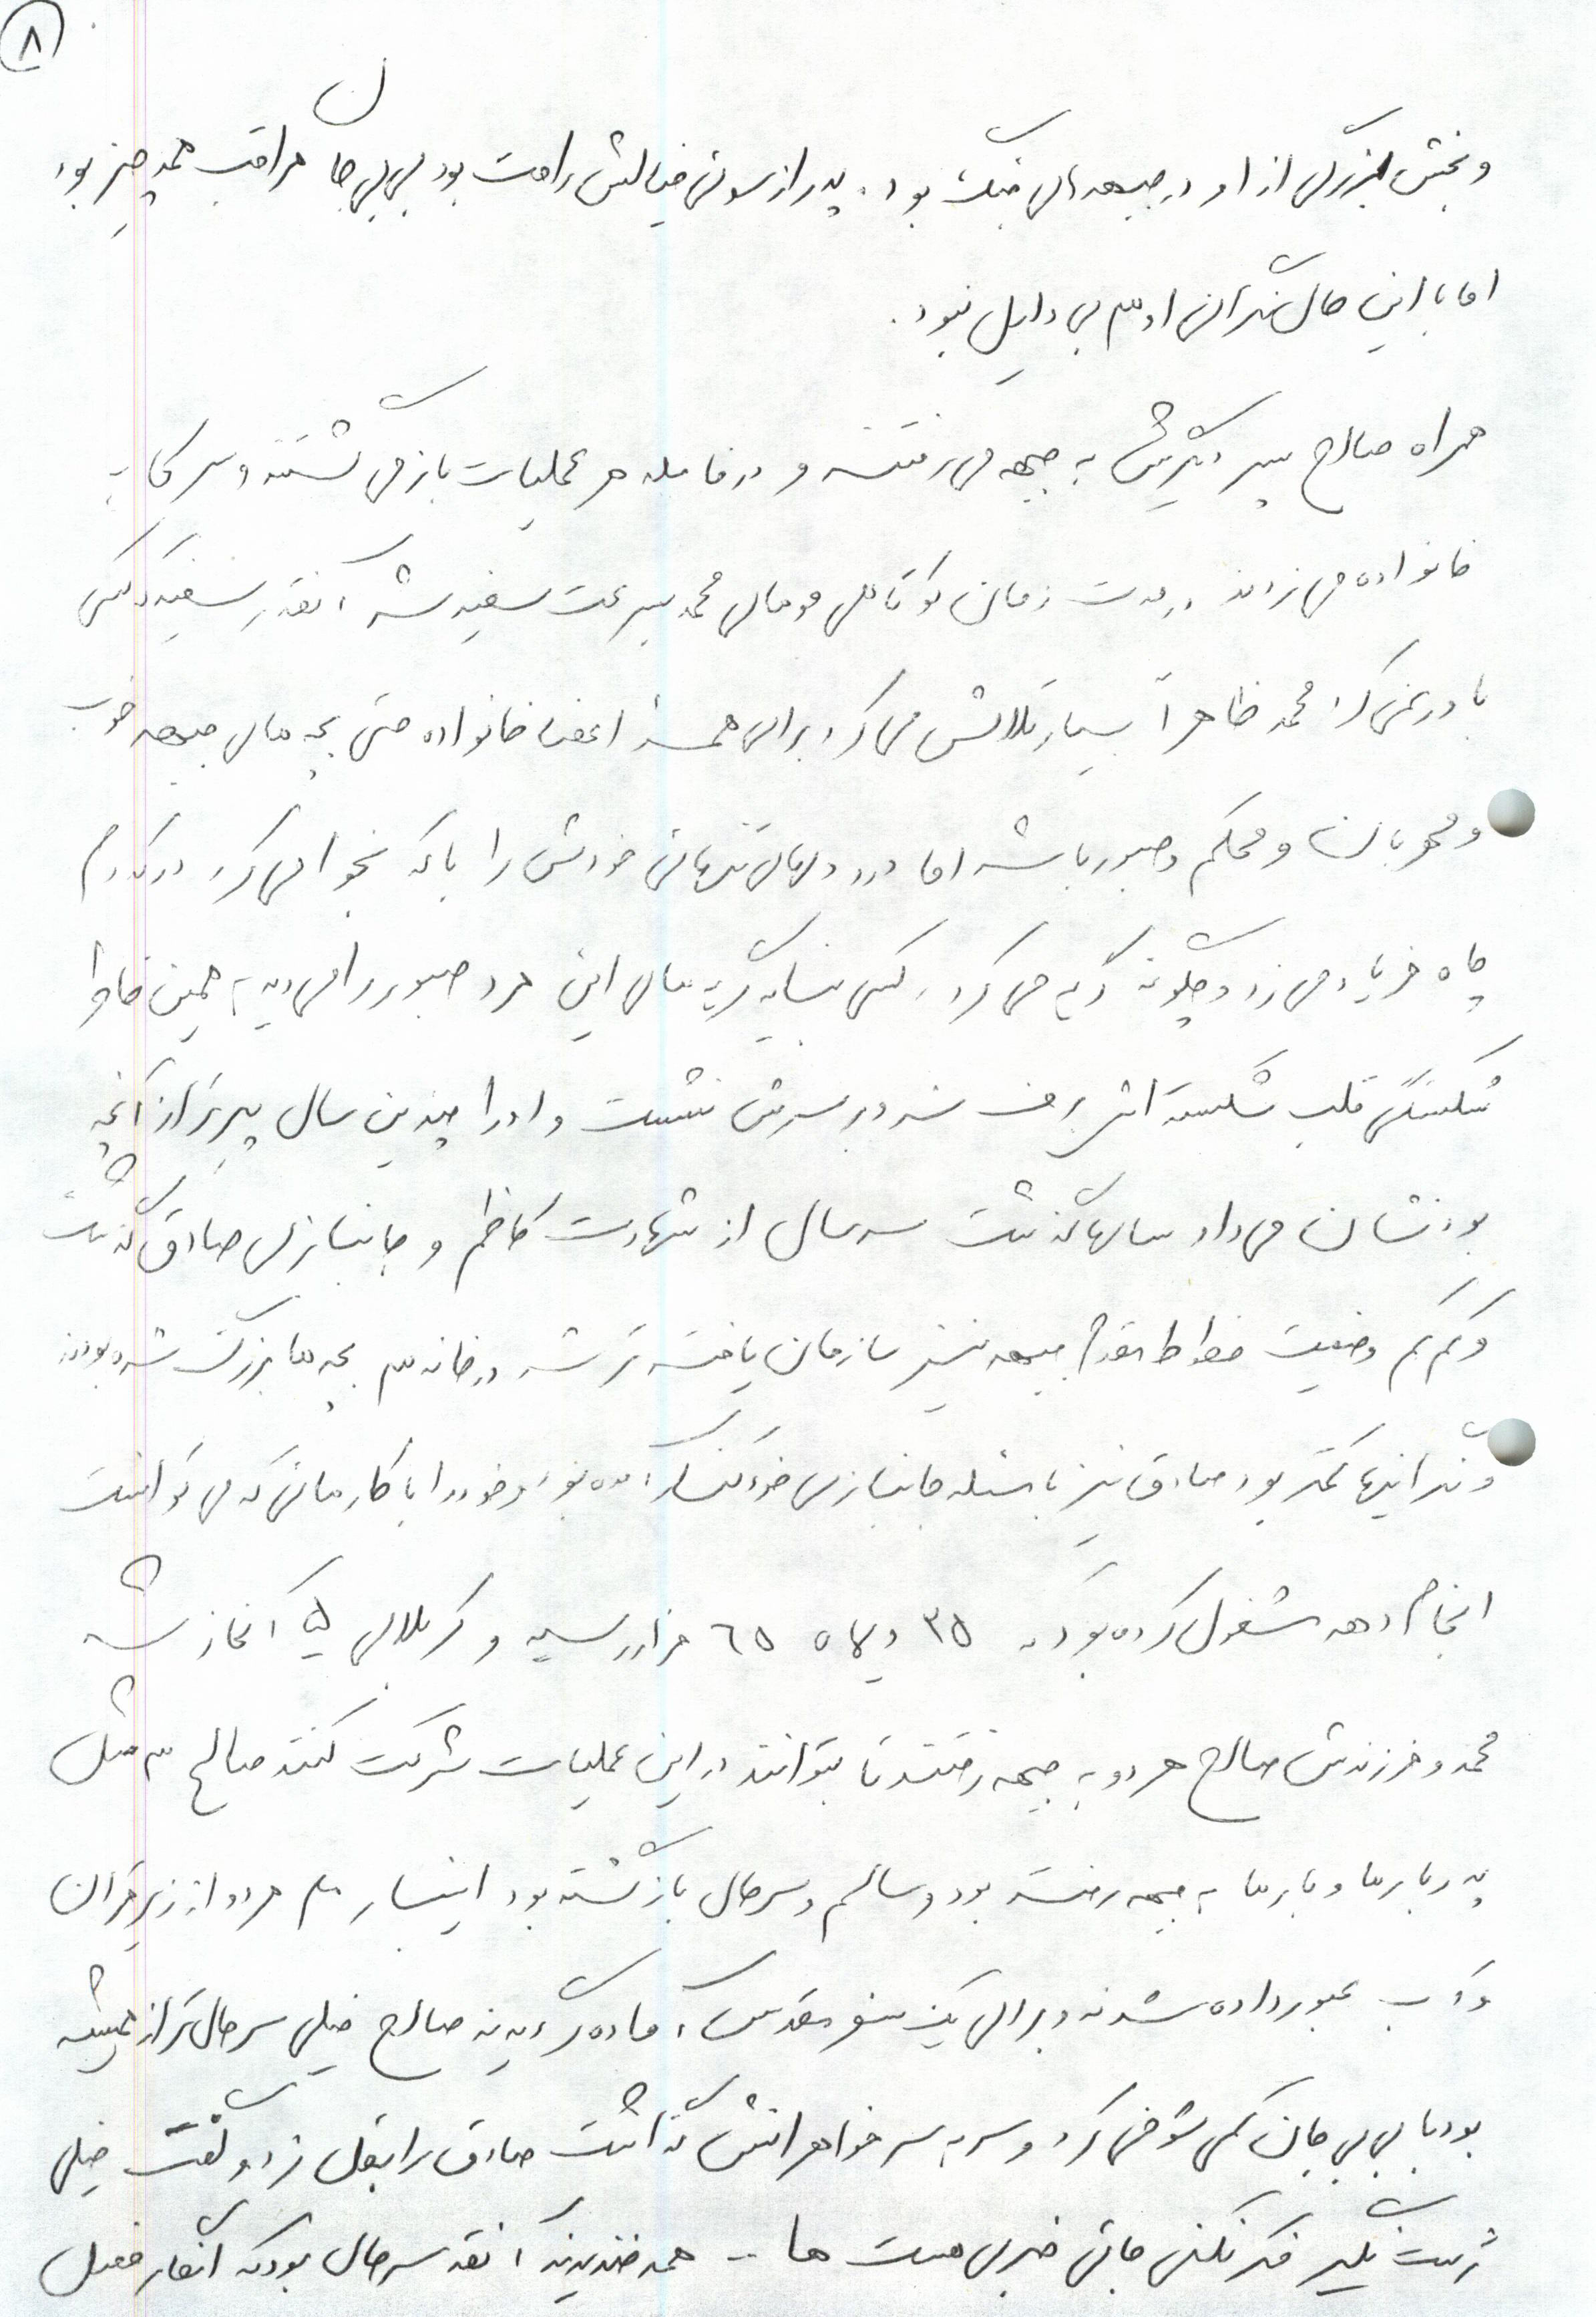 ۸
و بخش بزرگی از او در جبهه های جنگ بود. پدر از سوئی خیالش راحت بود بی بی جان مراقب همه چیز بود
اما با این حال نگرانی او هم بی دلیل نبود.
همراه صالح پسر دیگرش به جبهه می رفتند و در فاصله هر عملیات باز می گشتند و سرکی به
خانواده می زدند در مدت زمان کوتاهی موهای محمد بسرعت سفید شد آنقدر سفید که کسی
باور نمی کرد محمد ظاهراً بسیار تلاش می کرد برای همه اعضا خانواده حتی بچه های جبهه خوب
و مهربان و محکم و صبور باشد اما درد دلهای تنهائی خودش را با که نجوا می کرد در کدام
چاه فریاد می زد و چگونه گریه می کرد، کسی نباید گریه های این مرد صبور را می دید به همین خاطر
شکستگی قلب شکسته اش برف شد و بر سرش نشست و او را چندین سال پیرتر از آنچه
بود نشان می داد سالها گذشت سه سال از شهادت کاظم و جانبازی صادق گذشت
و کم کم وضعیت خطوط مقدم جبهه نیز سازمان یافته تر شد در خانه هم بچه ها بزرگ شده بودند
و نگرانیها کمتر بود صادق نیز با مسئله جانبازی خود کنار آمده بود و خود را با کارهائی که می توانست
انجام دهد مشغول کرده بود که ۳۵ دیماه ۶۵ فرا رسید و کربلای ۵ آغاز شد
محمد و فرزندش صالح هر دو به جبهه رفتند تا بتوانند در این عملیات شرکت کنند صالح هم مثل
پدر بارها و بارها به جبهه رفته بود و سالم و سرحال بازگشته بود اینبار هم هر دو از زیر قرآن
و آب عبور داده شدند و برای یک سفر مقدس آماده گردیدند صالح خیلی سرحال تر از همیشه
بود با بی بی جان کمی شوخی کرد و سر به سر خواهرانش گذاشت صادق را بغل زد و گفت خیلی
ژست نگیر فکر نکنی جائی خبری هست ها .. همه خندیدند آنقدر سرحال بود که انگار فصل